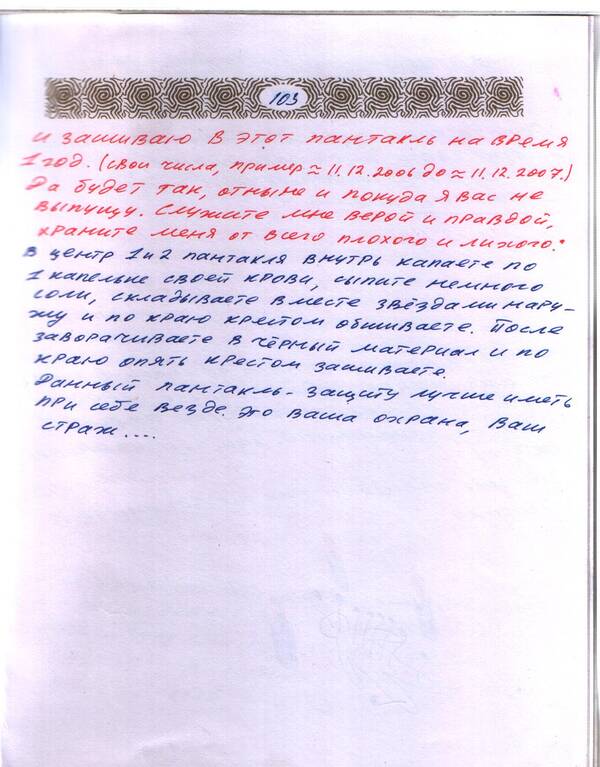 103
и зашиваю в этот пантакль на время
1 год. (свои числа, пример ≈ 11.12.2006 до ≈ 11.12.2007.)
Да будет так, отныне и покуда я вас не
выпущу. Служите мне верой и правдой,
храните меня от всего плохого и лихого."
в центр 1 и 2 пантакля внутрь капаете по
1 капельке своей крови, сыпите немного
соли, складываете вместе звёздами нару-
жу и по краю крестом обшиваете. После
заворачиваете в чёрный материал и по
краю опять крестом зашиваете.
Данный пантакль - защиту лучше иметь
при себе везде. Это ваша охрана, ваш
страж ....